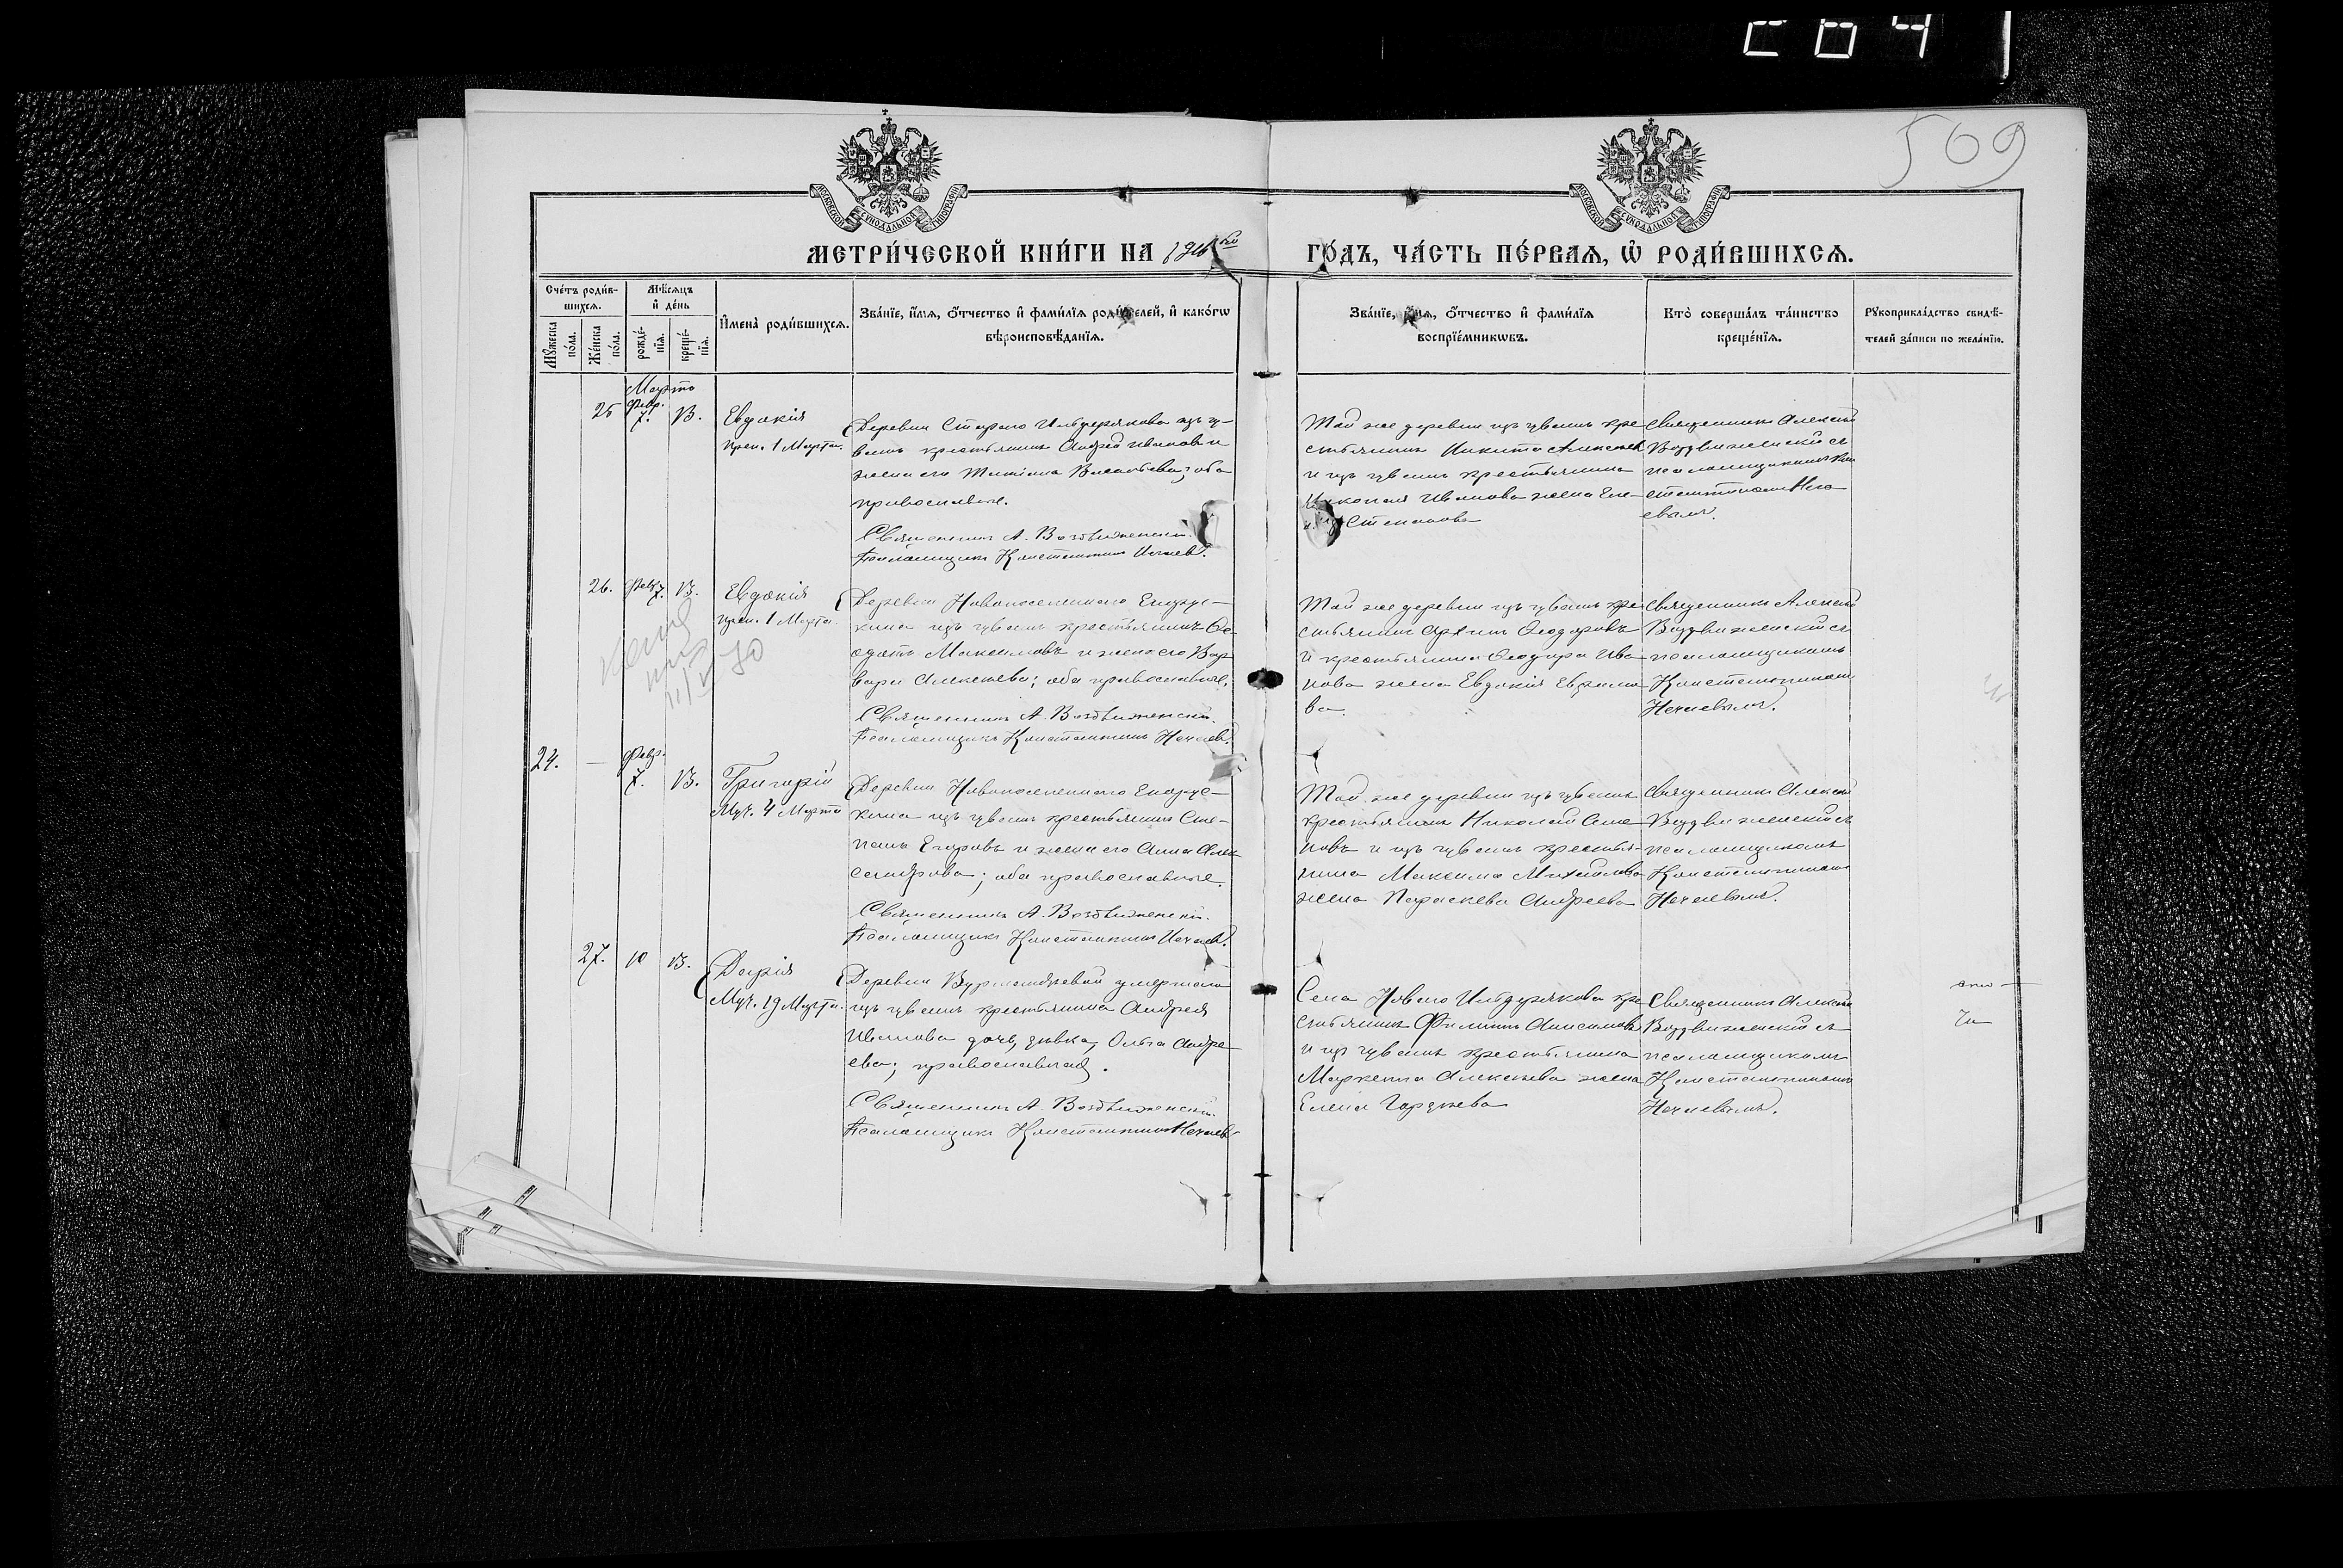 509
МЕТРИ́ЧЕСКОЙ КНИ́ГИ НА
ГО́ДЪ, ЧА́СТЬ ПЕ́РВАЯ, Ѡ҆ РОДИ́ВШИХСѦ.
Сче́тъ роди́в-
шихсѧ.
Мꙋ́жеска
по́ла.
Же́нска
по́ла.
Мѣ́сѧцъ
и҆ де́нь
рожде́-
нїѧ.
креще́-
нїѧ.
И҆мена̀ роди́вшихсѧ.
Зва́нїе, и҆́мѧ, ѻ҆́тчество и҆ фами́лїѧ роди́телей, и҆ како́гѡ
вѣроисповѣ́данїѧ.
Зва́нїе, и҆́мѧ, ѻ҆́тчество и҆ фами́лїѧ
воспрїе́мникѡвъ.
Кто̀ соверша́лъ та́инство
креще́нїѧ.
Рꙋкоприкла́дство свидѣ́-
телей за́писи по жела́нїю.
Мартъ
25 Февр. 7. 13. Евдокія
преп. 1 Марта.
Деревни Стараго Ильдерякова изъ чу-
вашъ крестьянинъ Андрей Ивановъ и
жена его Васильева; оба
православные.
Священникъ А. Воздвиженскій.
Псаломщикъ Константинъ Нечаевъ.
Той же деревни изъ чувашъ кре-
стьянинъ Никита Алексеевъ
и изъ чувашъ крестьянина
Николая Иванова жена Еле-
на Степанова
Священникъ Алексей
Воздвиженскій съ
псаломщикомъ Кон-
стантиномъ Неча-
евымъ.
26. Февр. 7. 13. Евдокія
преп. 1 Марта.
Деревни Новопоселеннаго Енорус-
кина изъ чувашъ крестьянинъ Ѳе-
одотъ Максимовъ и жена его Вар-
вара Алексеева; оба православные.
Священникъ А. Воздвиженскій.
Псаломщикъ Константинъ Нечаевъ.
Той же деревни изъ чувашъ кре-
стьянинъ Архипъ Ѳеодоровъ
и крестьянина Ѳеодора Ива-
нова жена Евдокія Ефимо-
ва.
Священникъ Алексей
Воздвиженскій съ
псаломщикомъ
Константиномъ
Нечаевымъ.
24. — Февр. 7. 13. Григорій
Муч. 4 Марта
Деревни Новопоселеннаго Енорус-
кина изъ чувашъ крестьянинъ Сте-
панъ Егоровъ и жена его Анна Алек-
сандрова; оба православные.
Священникъ А. Воздвиженскій.
Псаломщикъ Константинъ Нечаевъ.
Той же деревни изъ чувашъ
крестьянинъ Николай Семе-
новъ и изъ чувашъ крестья-
нина Максима Михайлова
жена Параскева Андреева
Священникъ Алексей
Воздвиженскій съ
псаломщикомъ
Константиномъ
Нечаевымъ.
27. 10 13. Дарія
Муч. 19 Марта.
Деревни умершаго
изъ чувашъ крестьянина Андрея
Иванова дочь, девка, Ольга Андре-
ева; православная.
Священникъ А. Воздвиженскій.
Псаломщикъ Константинъ Нечаевъ.
Села Новаго Ильдерякова кре-
стьянинъ Филиппъ Анисимовъ
и изъ чувашъ крестьянина
Маркелла Алексеева жена
Елена Гордеева
Священникъ Алексей
Воздвиженскій съ
псаломщикомъ
Константиномъ
Нечаевымъ.